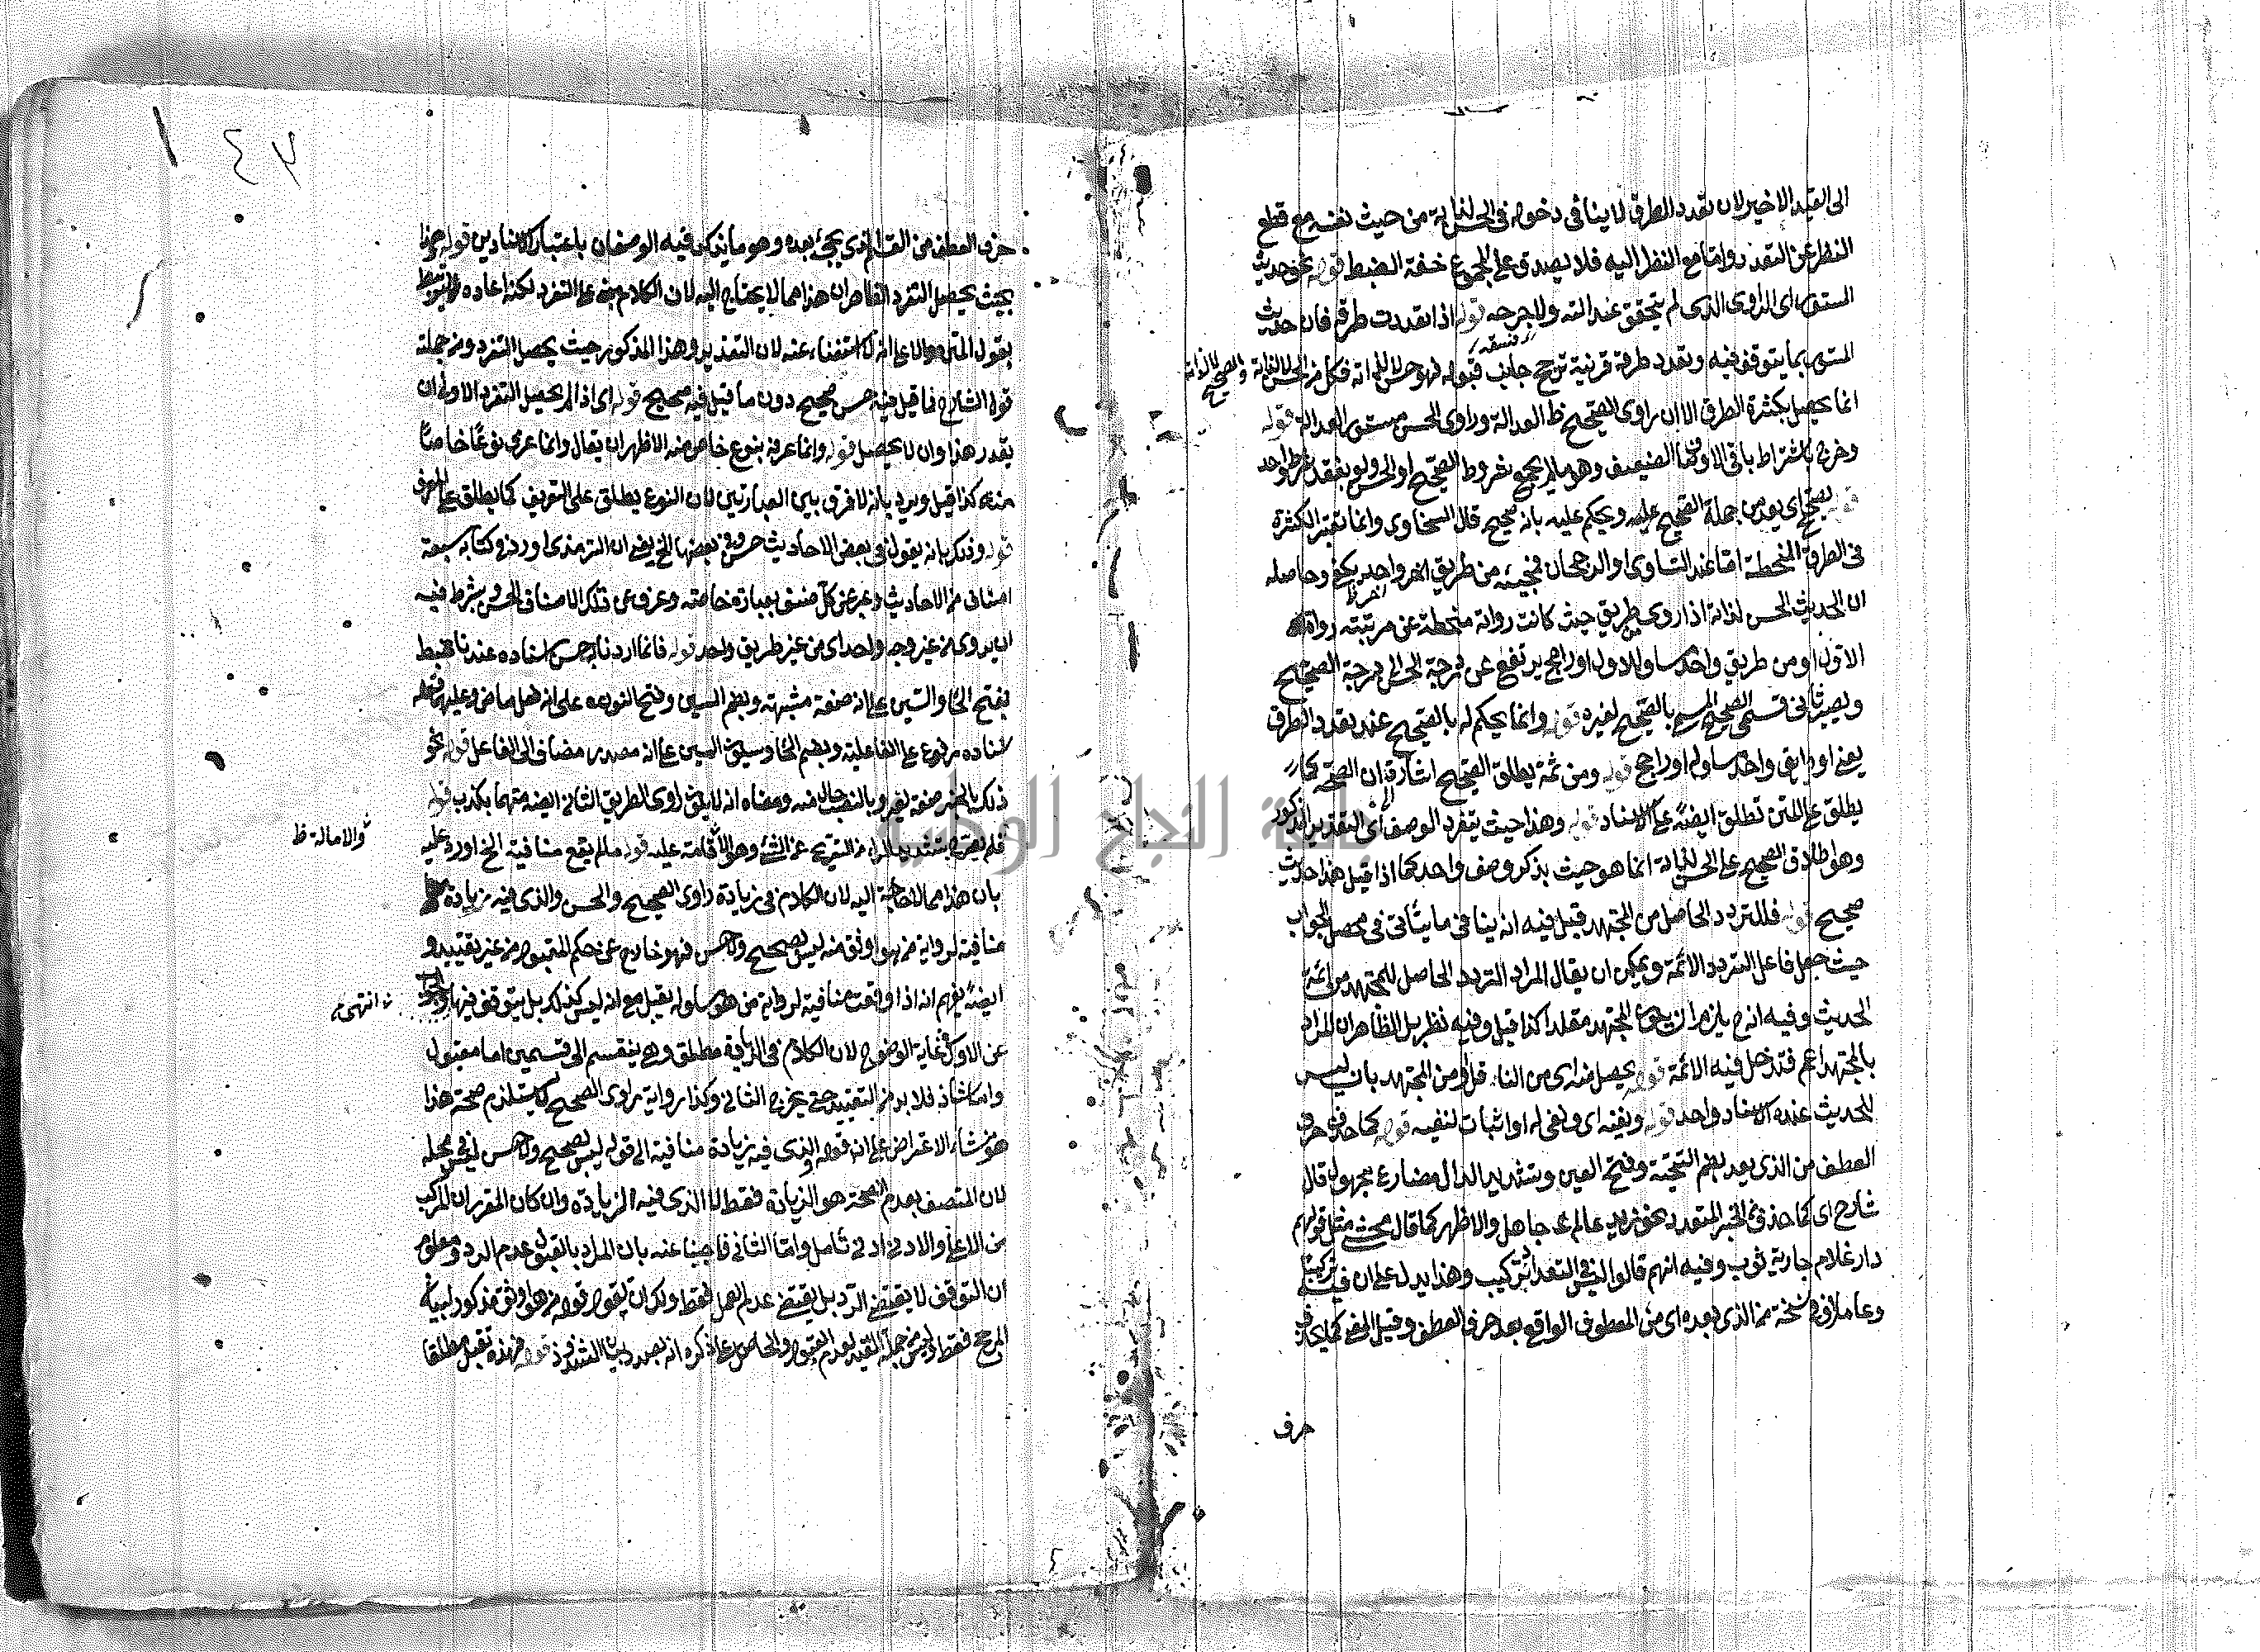 الى القيد الاخير لان تعدد الطرق لا ينافى دخوله فى الحسن لذاته من حيث نفسه مع قطع
النظر عن التعدد واما مع النظر اليه فلا يصدق على المجموع خفة الضبط قوله نحو حديث
المستور اى الراوى الذى لم يتحقق عدالته ولا جرحه قوله اذا تعددت طرقه فان حديث
المستور مما يتوقف فيه وتعدد طرقه قرينة ترجح جانب قبوله فهو حسن لا لذاته فكل من الحسن لا لذاته والصحيح لا لذاته
انما يحصل بكثرة الطرق الا ان راوى الصحيح ظ العدالة وراوى الحسن مستور العدالة قوله
وخرج باشتراط باقى الاوصاف الضعيف وهو ما لم يجمع شروط الصحيح او الحسن ولو بفقد شرط واحد
قوله يصحح اى يعد من جملة الصحيح عليه ويحكم عليه بانه صحيح قال السخاوى وانما تعتبر الكثرة
فى الطرق المنحطة اما عند التساوى او الرجحان فمجيئه من طريق اخر واحد يكفى وحاصله
ان الحديث الحسن لذاته اذا روى من طريق حيث كانت رواته منحطة عن مرتبة رواته
الاول او من طريق واحد مساو للاول او راجح يرتفع عن درجة الحسن الى درجة الصحيح
ويصير ثانى قسمى الصحيح المسمى بالصحيح لغيره قوله وانما يحكم له بالصحيح عند تعدد الطرق
يعنى او طريق واحد مساو له او راجح قوله ومن ثمة يطلق الصحيح اشارة الى ان الصحة كما
يطلق على المتن تطلق ايضا على الاسناد قوله وهذا حيث ينفرد الوصف اى التقدير المذكور
وهو اطلاق الصحيح على الحسن لذاته انما هو حيث يذكر وصف واحد كما اذا قيل هذا حديث
صحيح قوله فللتردد الحاصل من المجتهد قيل فيه انه ينافى ما يأتى فى محصل الجواب
حيث جعل فاعل التردد الائمة ويمكن ان يقال المراد التردد الحاصل للمجتهد من ائمة
الحديث وفيه انه ح يلزم ان يكون المجتهد مقلدا كذا قيل وفيه نظر بل الظاهر ان المراد
بالمجتهد اعم فتدخل فيه الائمة قوله يحصل منه اى من الناقل او من المجتهد بان ليس
للحديث عنده الا اسناد واحد قوله وبقيته اى ونفى له او اثبات لنفيه قوله كما حذف حرف
العطف من الذى يعد بضم التحتية وفتح العين وتشديد الدال مضارع مجهول قال
شارح اى كما حذف فى الخبر المتعدد نحو زيد عالم جاهل والاظهر كما قال محشى مثل قولهم
دار غلام جارية ثوب وفيه انهم قالوا النحو فى التعداد تركيب وهذا يدل على ان فيه تركيبا
وعاملا وفى نسخة من الذى بعده اى من المعطوف الواقع بعد حرف العطف وقيل المعنى كما يحذف
حرف
حرف العطف من القسم الذى يجئ بعده وهو ما يذكر فيه الوصفان باعتبار الاسنادين قوله هذا
بحيث يحصل التفرد الظاهر ان هذا مما لا يحتاج اليه لان الكلام مبنى على التفرد لكنه اعاده
بقول المتن والا على انه لا استغناء عنه لان التقدير وهذا المذكور حيث يحصل التفرد ومن جملته
قوله الشارح فما قيل فيه حسن صحيح دون ما قيل فيه صحيح قوله اى اذا لم يحصل التفرد الاولى ان
يقدر هذا وان لا يحصل قوله وانما عرف بنوع خاص منه الاظهر ان يقال وانما عرف نوعا خاصا
منه كذا قيل ويرد بانه لا فرق بين العبارتين لان النوع يطلق على التعريف كما يطلق على المعرف
قوله وذلك بانه يقول فى بعض الاحاديث حسن وفى بعضها الخ يعنى ان الترمذى اورد فى كتابه سبعة
اصناف من الاحاديث وعبر عن كل صنف بعبارة خاصة وعرف من تلك الاصناف الحسن وشرط فيه
ان يروى من غير وجه واحد اى من غير طريق واحد قوله فانما اردنا به حسن اسناده عندنا ضبط
بفتح الحاء والسين على انه صفة مشبهة وبضم السين وفتح النون على انه فعل ماض وعليهما
اسناده مرفوع على الفاعلية وبضم الحاء وسكون السين على انه مصدر مضاف الى الفاعل قوله نحو
ذلك بالجر صفة لغير وبالنصب حال منه ومعناه انه لا يكون راوى الطريق الثانى ايضا متهما بكذب قوله
فلم يعرج بتشديد الراء من التعريج على الشئ وهو الاقامة عليه قوله ما لم يقع منافية الخ اورد عليه
والامالة ظ
بان هذا مما لا حاجة اليه لان الكلام فى زيادة راوى الصحيح والحسن والذى فيه زيادة
منافية لرواية من هو اوثق منه ليس بصحيح ولا حسن فهو خارج عن حكم المقبول من غير تقييد و
ايضا يفهم انه اذا وقعت منافية لرواية من هو مساو له يقبل مع انه ليس كذلك بل يتوقف فيها والجواب
انتهى
عن الاول فى غاية الوضوح لان الكلام فى الزيادة مطلق وهى ينقسم الى قسمين اما مقبول
واما شاذ فلا بد من التقييد حتى يخرج الثانى وكذا رواية راوى الصحيح لا يستلزم صحة هذا
هو منشاء الاعتراض على ان قوله والذى فيه زيادة منافية الى قوله ليس بصحيح ولا حسن ليس فى محله
لان المتصف بعدم الصحة هو الزيادة فقط لا الذى فيه الزيادة وان كان المقرر ان المركب
من الاعلى والادنى ادنى تأمل واما الثانى فاجيبنا عنه بان المراد بالقبول عدم الرد ومعلوم
ان التوقف لا يقتضى الرد بل يقتضى عدم العمل فقط ولك ان تقول قوله من هو اوثق مذكور لبيان
المرجح فقط وليس من جملة القيد لعدم القبول والحاصل على ما ذكره انه بصدد بيان الشذوذ قوله فهذه تقبل مطلقا